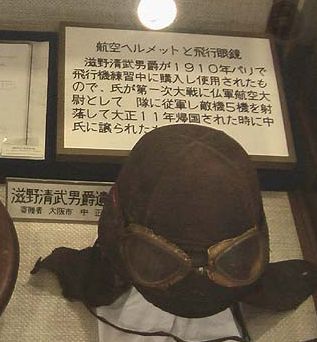 航空ヘルメットと飛行眼鏡
滋野清武男爵が1910年パリで
飛行機練習中に購入し使用されたも
ので、氏が第一次大戦に仏軍航空大
尉として 隊に従軍し敵機5機を射
落して大正11年帰国された時に中
氏に譲られた
滋野清武男爵遺
寄贈者 大阪市 中 正